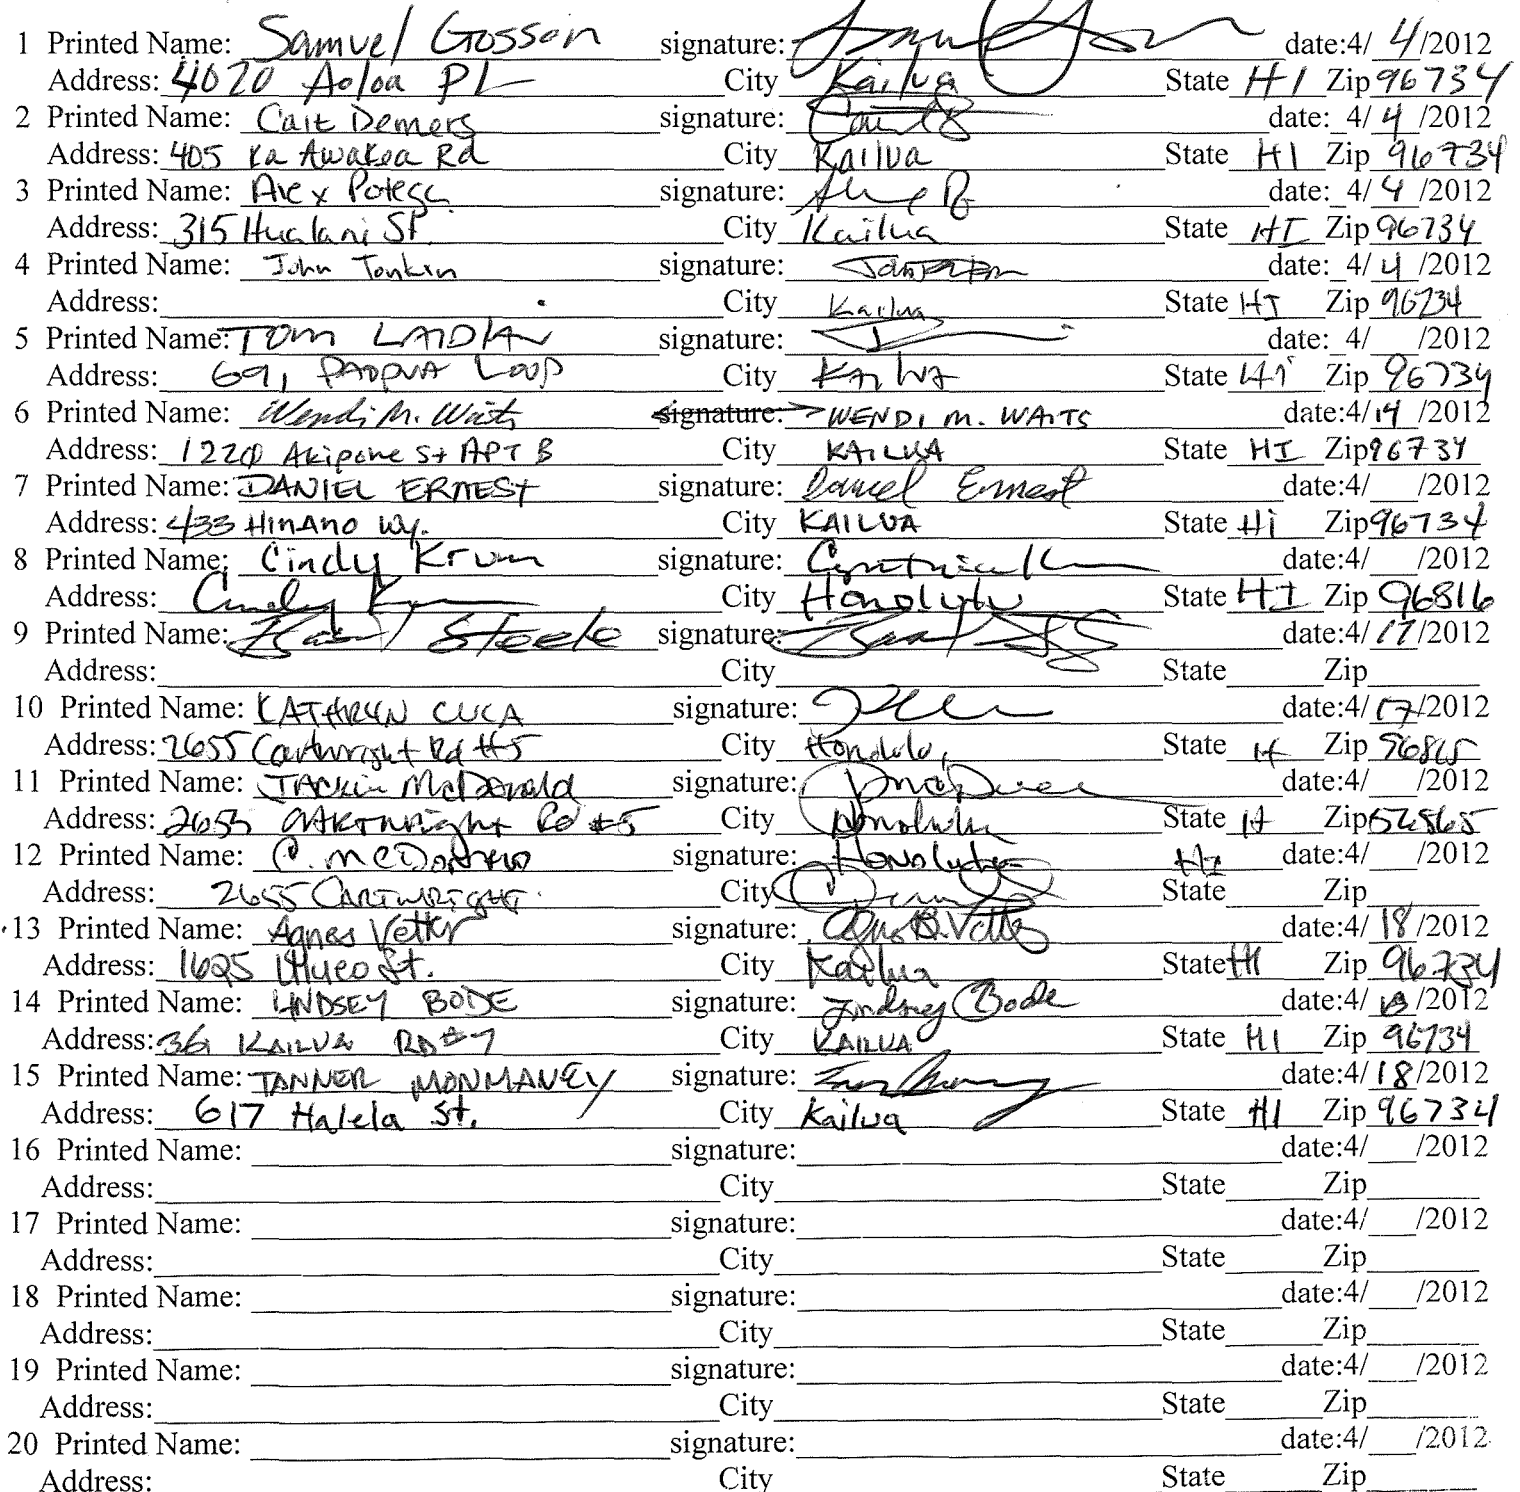 1 Printed Name: Samuel Gosson signature: date:4/ 4/2012
Address: 4020 Aoloa PL City Kailua State HI Zip 96734
2 Printed Name: Cait Demers signature: date: 4/ 4 /2012
Address: 405 Ka Awakea Rd City Kailua State HI Zip 96734
3 Printed Name: Alex Potega signature: date: 4/ 4 /2012
Address: 315 Hualani St. City Kailua State HI Zip 96734
4 Printed Name: John Tonkin signature: date: 4/ 4 /2012
Address: City Kailua State HI Zip 96734
5 Printed Name: TOM LAIDLAW signature: date: 4/ /2012
Address: 691, LOOP City KAILUA State Hi Zip 96734
6 Printed Name: Wendi M. Waits signature: WENDI M. WAITS date:4/ 14 /2012
Address: 1220 Akipohe St APT B City KAILUA State HI Zip 96734
7 Printed Name: DANIEL ERNEST signature: Daniel Ernest date:4/ /2012
Address: 433 HINANO Wy. City KAILUA State Hi Zip 96734
8 Printed Name: Cindy Krum signature: date:4/ /2012
Address: Cindy City Honolulu State HI Zip 96816
9 Printed Name: Steele signature: date:4/ 17 /2012
Address: City State Zip
10 Printed Name: KATHRYN CUCA signature: date:4/ 17 /2012
Address: 2655 Cartwright Rd #5 City Honolulu, State H Zip 96815
11 Printed Name: Jackie McDonald signature: date:4/ /2012
Address: 2655 Cartwright Rd #5 City Honolulu State H Zip
12 Printed Name: C. McDonald signature: Honolulu HI date:4/ /2012
Address: 2655 CARTWRIGHT. City State Zip
13 Printed Name: Agnes Vetter signature: date:4/ 18 /2012
Address: 1625 Ulueo St. City Kailua State HI Zip 96734
14 Printed Name: LINDSEY BODE signature: Lindsey Bode date:4/ 18 /2012
Address: 361 KAILUA RD #7 City KAILUA State HI Zip 96734
15 Printed Name: TANNER MONMANEY signature: date:4/ 18 /2012
Address: 617 Halela St. City Kailua State HI Zip 96734
16 Printed Name: signature: date:4/ /2012
Address: City State Zip
17 Printed Name: signature: date:4/ /2012
Address: City State Zip
18 Printed Name: signature: date:4/ /2012
Address: City State Zip
19 Printed Name: signature: date:4/ /2012
Address: City State Zip
20 Printed Name: signature: date:4/ /2012
Address: City State Zip